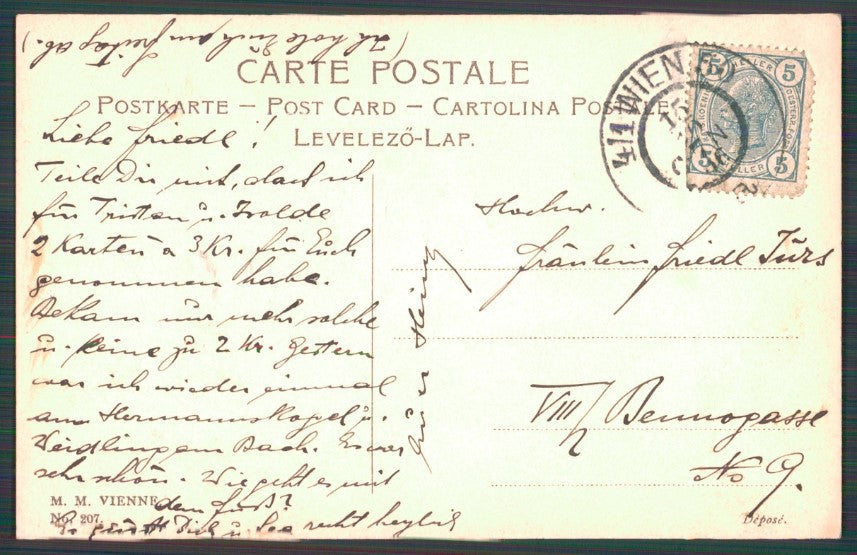 (Ich hole Euch am Freitag ab.)
CARTE POSTALE
POSTKARTE – POST CARD – CARTOLINA POSTALE
LEVELEZŐ-LAP.
4/1 WIEN
15
5 HELLER 5
5 HELLER 5
Liebe Friedl!
Teile Dir mit, dass ich
für Tristan u. Isolde
2 Karten a 3 Kr. für Euch
genommen habe.
Bekam nur mehr solche
u. keine zu 2 Kr. Gestern
war ich wieder einmal
am Hermannskogel u.
Weidling am Bach. Es war
sehr schön. Wie geht es mit
dem Fuß?
Es grüßt Dich u. Lea recht herzlich
Euer Heinz
Hochw.
Fräulein Friedl Türs
VIII/2 Bennogasse
No 9.
M. M. VIENNE
No. 207.
Déposé.